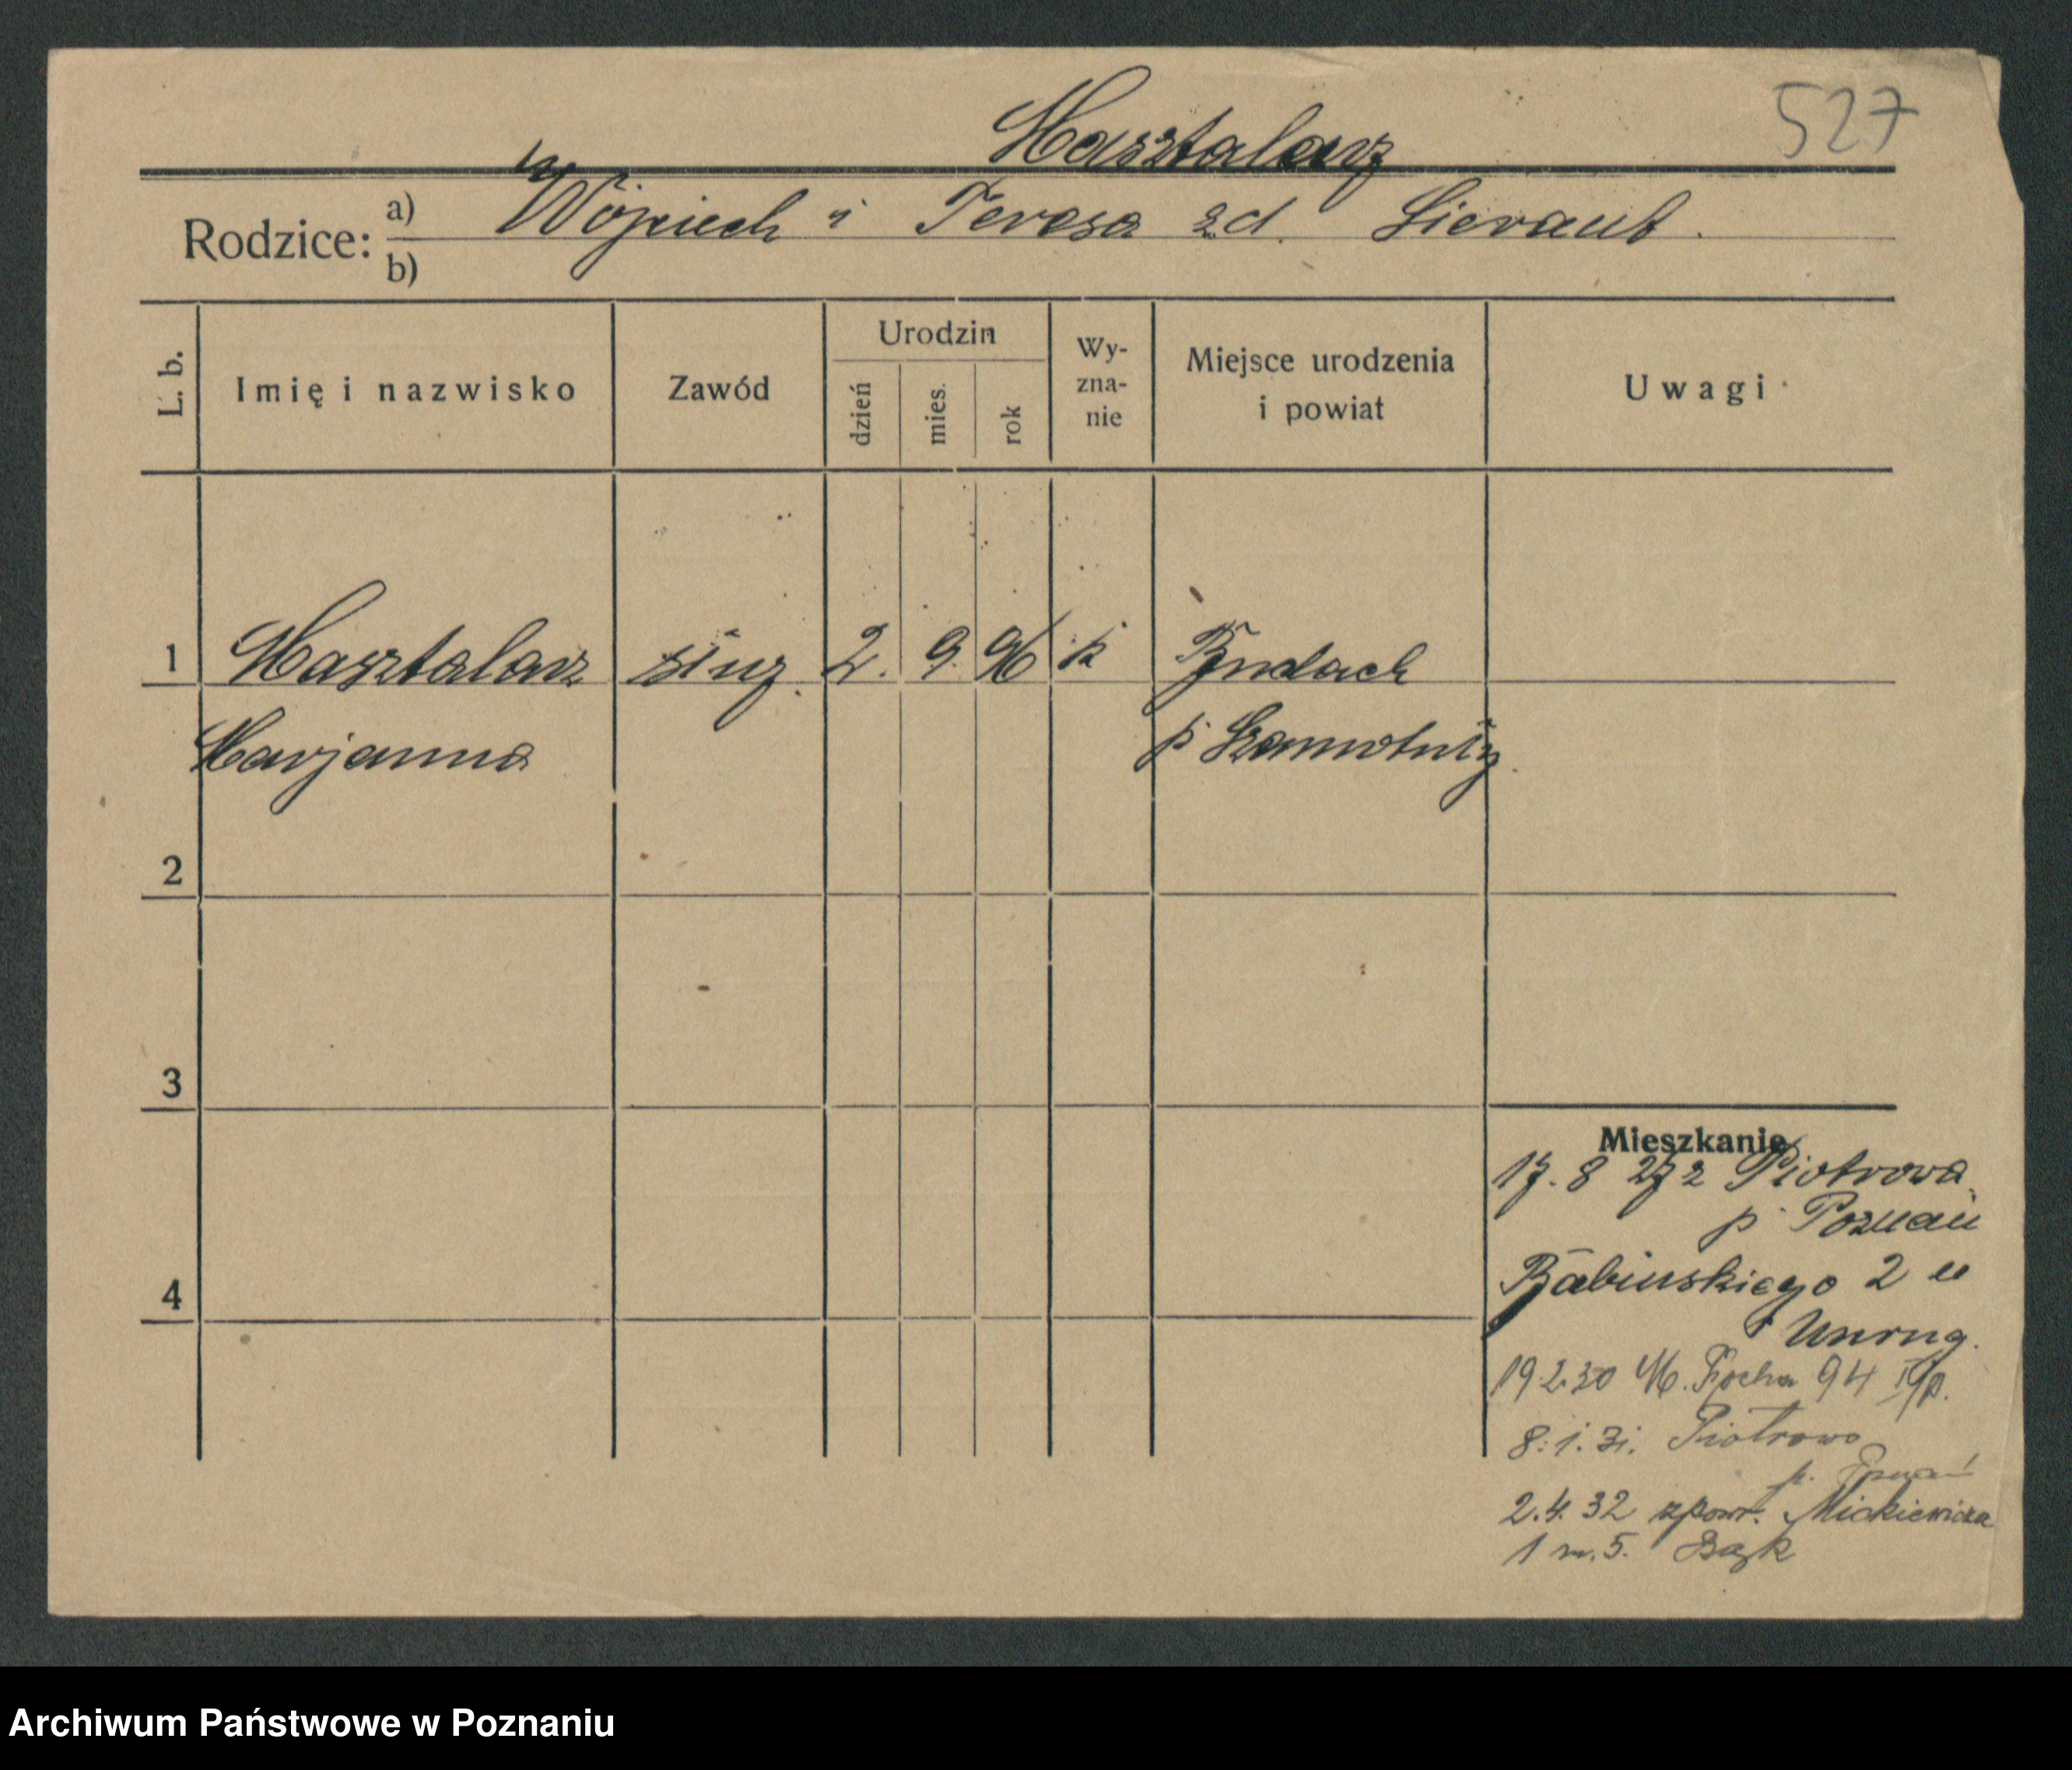 527
Masztalarz
Rodzice: a) Wojciech i Teresa zd. Sieraut.
b)
L. b.
Imię i nazwisko
Zawód
Urodzin
dzień
mies.
rok
Wy-
zna-
nie
Miejsce urodzenia
i powiat
Uwagi
1 Masztalarz służ. 2. 9. 96 k
Marjanna
p Szamotuły
2
3
4
Mieszkanie
17. 8 27 z Piotrowa
p Poznań
Babińskiego 2 u
Unrug.
19.2.30 M. Focha 94
8.1.31. Piotrowo
p. Poznań
2.4.32 zpowr. Mickiewicza
1 m. 5. Bąk
Archiwum Państwowe w Poznaniu